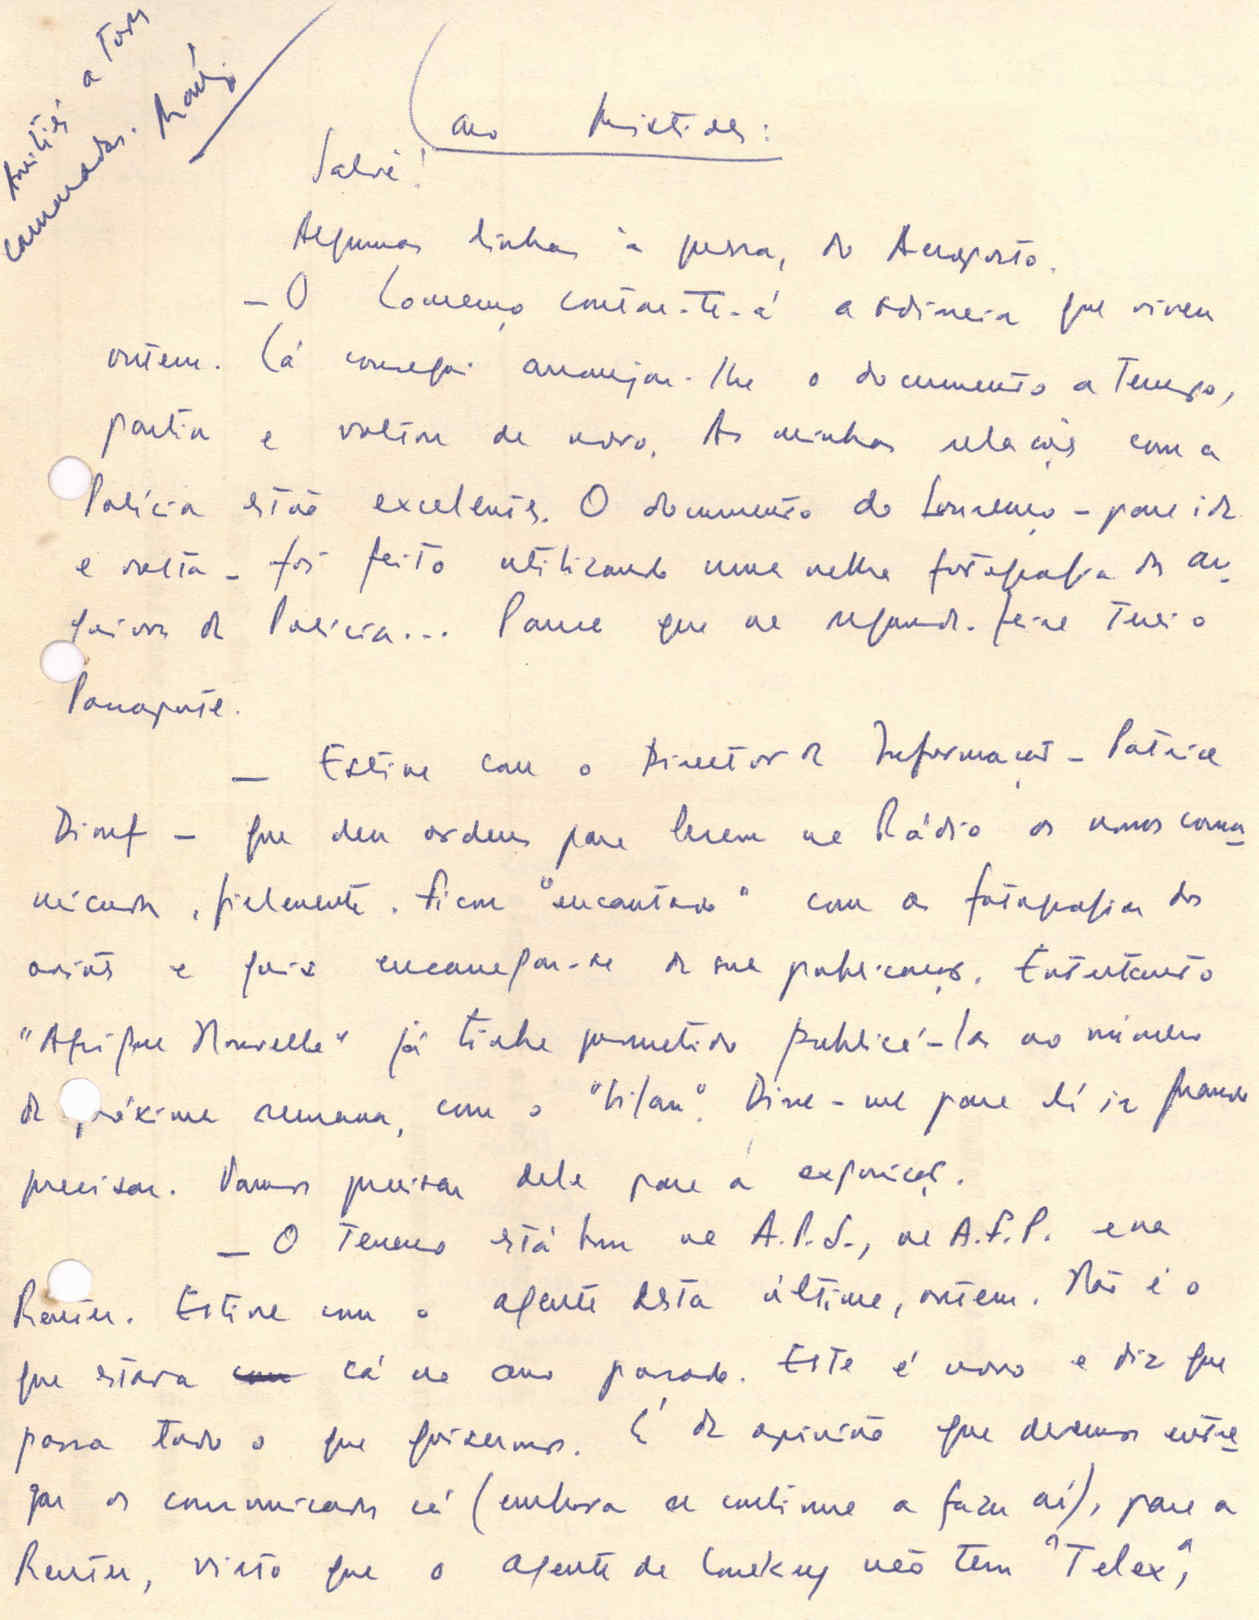 Amitiés a tous
camaradas.
Caro Aristides:
Salvé!
Algumas linhas à pressa, do Aeroporto.
– O Lourenço contar-te-á a odisseia que viveu
ontem. Lá consegui arranjar-lhe o documento a tempo,
partir e voltar de novo. As minhas relações com a
Polícia estão excelentes. O documento do Lourenço – para ida
e volta – foi feito utilizando uma velha fotografia dos ar-
quivos da Polícia... Parece que na segunda-feira terei o
Passaporte.
– Estive com o Director da Informação – Patrice
Diouf – que deu ordens para lerem na Rádio os nossos comu-
nicados, fielmente. Ficou "encantado" com as fotografias dos
aviões e quis encarregar-se da sua publicação. Entretanto
"Afrique Nouvelle" já tinha prometido publicá-las no número
da próxima semana, com o "bilan". Disse-me para lá ir quando
precisar. Vamos precisar dele para a exposição.
– O terreno está bom na A.P.S., na A.F.P. e na
Reuter. Estive com o agente desta última, ontem. Não é o
que estava cá no ano passado. Este é novo e diz que
passa tudo o que quisermos. É de opinião que devemos entre-
gar os comunicados cá (embora se continue a fazer aí), para a
Reuter, visto que o agente de Conakry não tem "Telex",